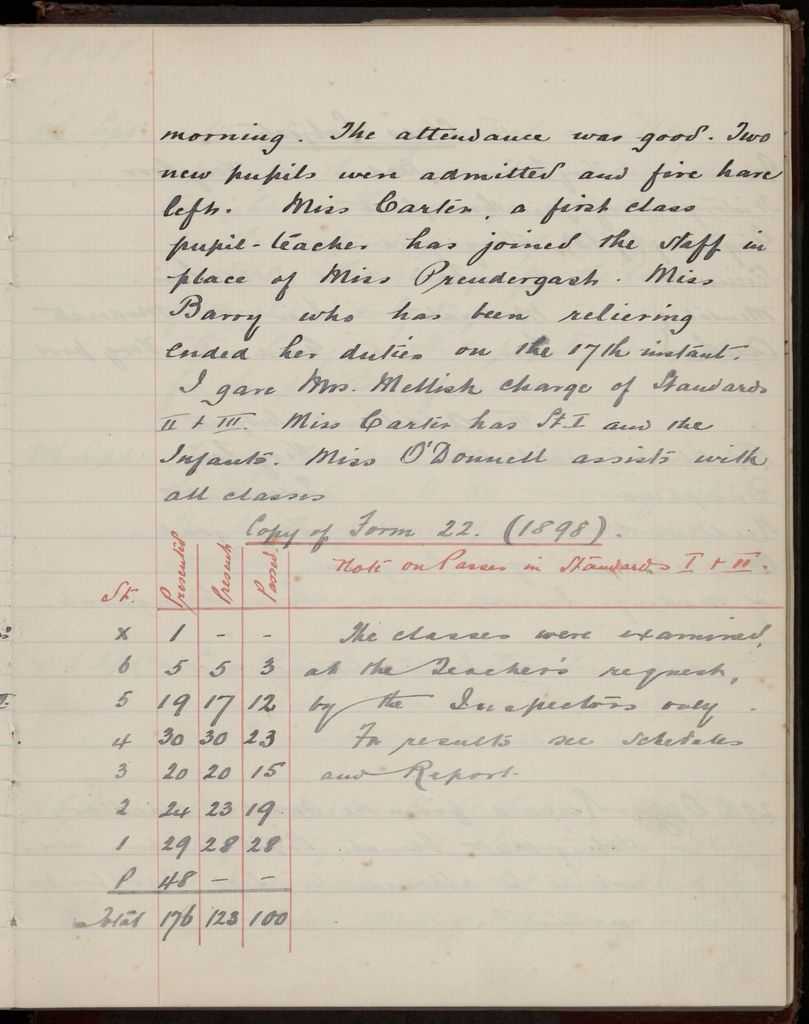 morning. The attendance was good. Two
new pupils were admitted and five have
left. Miss Carter, a first class
pupil-teacher has joined the staff in
place of Miss Prendergast. Miss
Barry who has been relieving
ended her duties on the 17th instant.
I gave Mrs. Mellish charge of Standards
II & III. Miss Carter has St. I and the
Infants. Miss O'Donnell assists with
all classes
Copy of Form 22. (1898).
St. Presented Present Passed. Note on Passes in Standards I & II.
X 1 - - The classes were examined,
6 5 5 3 at the Teacher's request,
5 19 17 12 by the Inspectors only.
4 30 30 23 For results see Schedules
3 20 20 15 and Report.
2 24 23 19
1 29 28 28
P 48 - -
Total 176 123 100